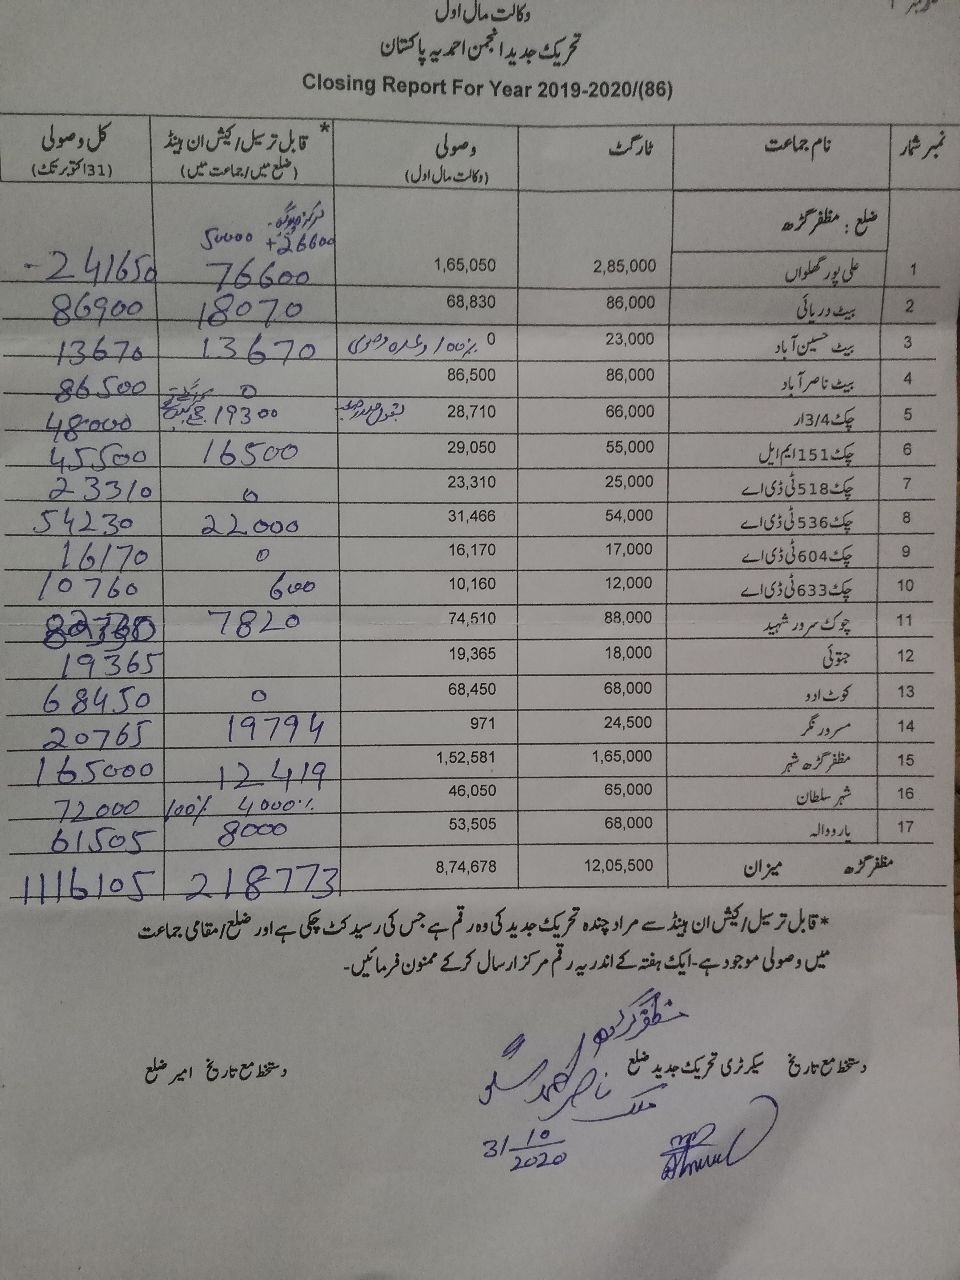 وکالت مال اول
تحریک جدید انجمن احمدیہ پاکستان
Closing Report For Year 2019-2020/(86)
نمبر شمار نام جماعت ٹارگٹ وصولی (وکالت مال اول) * قابل ترسیل/کیش ان ہینڈ (ضلع میں/جماعت میں) کل وصولی (31 اکتوبر تک)
ضلع : مظفر گڑھ
50000 +26600
1 علی پور گھلواں 2,85,000 1,65,050 76600 241650
2 بیٹ دریائی 86,000 68,830 18070 86900
3 بیٹ حسین آباد 23,000 0 100% وعدہ وصولی 13670 13670
4 بیٹ ناصر آباد 86,000 86,500 0 86500
5 چک 3/4 ار 66,000 28,710 بقول صدر صاحب 19300 48000
6 چک 151 ایم ایل 55,000 29,050 16500 45500
7 چک 518 ٹی ڈی اے 25,000 23,310 0 23310
8 چک 536 ٹی ڈی اے 54,000 31,466 22000 54230
9 چک 604 ٹی ڈی اے 17,000 16,170 0 16170
10 چک 633 ٹی ڈی اے 12,000 10,160 600 10760
11 چوک سرور شہید 88,000 74,510 7820
12 جتوئی 18,000 19,365 19365
13 کوٹ ادو 68,000 68,450 0 68450
14 مسرور نگر 24,500 971 19794 20765
15 مظفر گڑھ شہر 1,65,000 1,52,581 12419 165000
16 شہر سلطان 65,000 46,050 4000 100% 72000
17 یارووالہ 68,000 53,505 8000 61505
مظفر گڑھ میزان 12,05,500 8,74,678 218773 1116105
* قابل ترسیل/کیش ان ہینڈ سے مراد چندہ تحریک جدید کی وہ رقم ہے جس کی رسید کٹ چکی ہے اور ضلع/مقامی جماعت
میں وصولی موجود ہے۔ ایک ہفتہ کے اندر یہ رقم مرکز ارسال کر کے ممنون فرمائیں۔
مظفر گڑھ
دستخط مع تاریخ سیکرٹری تحریک جدید ضلع دستخط مع تاریخ امیر ضلع
ملک ناصر احمد
31/10/2020